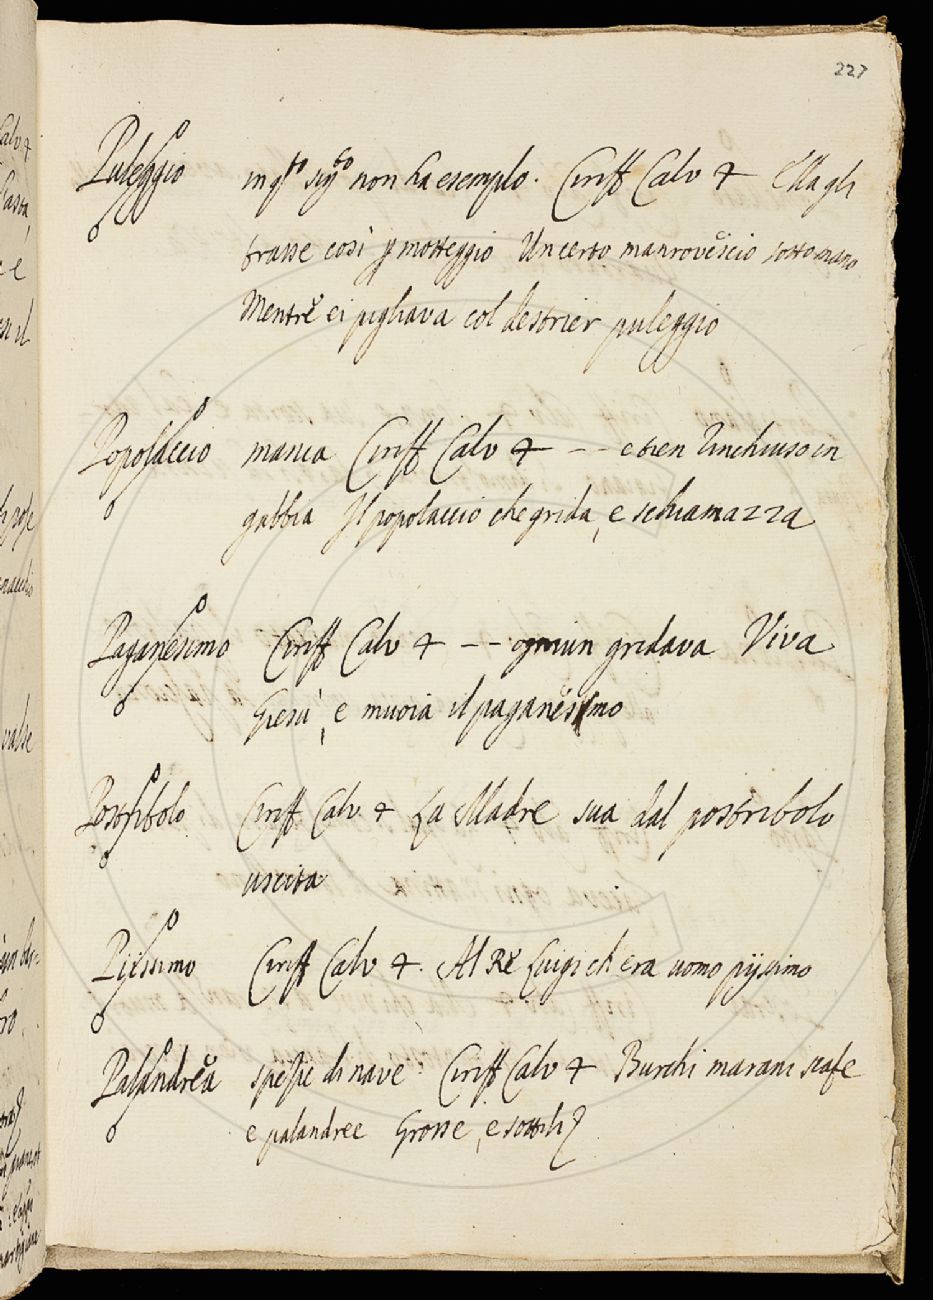 227
Puleggio in q.to sig.to non ha esemplo. Ciriff Calv 4 Ella gli
trasse così p motteggio Un certo manrovescio sottomano
Mentre ei pigliava col destrier puleggio
Popolaccio manca Ciriff Calv 4 -- e tien rinchiuso in
gabbia Il popolaccio che grida, e schiamazza
Paganesimo Ciriff Calv 4 -- ogniun gridava Viva
Giesù, e muoia il paganesimo
Postribolo Ciriff Calv 4 La Madre sua dal postribolo
uscita
Piissimo Ciriff Calv 4. Al Rè Luigi ch era uomo pijssimo
Palandrea spezie di nave Ciriff Calv 4 Burchi marani scafe
e palandree Grosse, e sottili